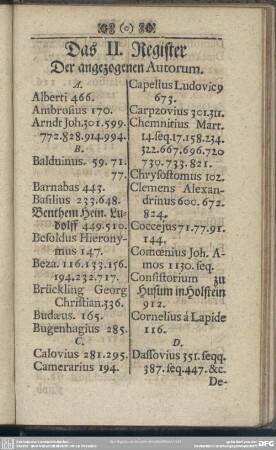 (o)
Das II. Register
Der angezogenen Autorum.
A.
Alberti 466.
Ambrosius 170.
Arndt Joh. 301. 599.
772. 828. 914. 994.
B.
Balduinus. 59. 71.
77.
Barnabas 443.
Basilius 233. 648.
Benthem Hein. Lu-
dolff 449. 510.
Besoldus Hierony-
mus 147.
Beza. 116. 133. 156.
194. 232. 717.
Brückling Georg
Christian. 336.
Budæus. 165.
Bugenhagius 285.
C.
Calovius 281. 295.
Camerarius 194.
Capellus Ludovic9
673.
Carpzovius 301. 311.
Chemnitius Mart.
14. seq. 17. 158. 234.
322. 667. 696. 720
730. 733. 821.
Chrysostomus 102.
Clemens Alexan-
drinus 600. 672.
824.
Coccejus 71. 77. 91.
144.
Comœnius Joh. A-
mos 1130. seq.
Consistorium zu
Husum in Holstein
912.
Cornelius á Lapide
116.
D.
Dassovius 351. seqq.
387. seq. 447. &c.
De-